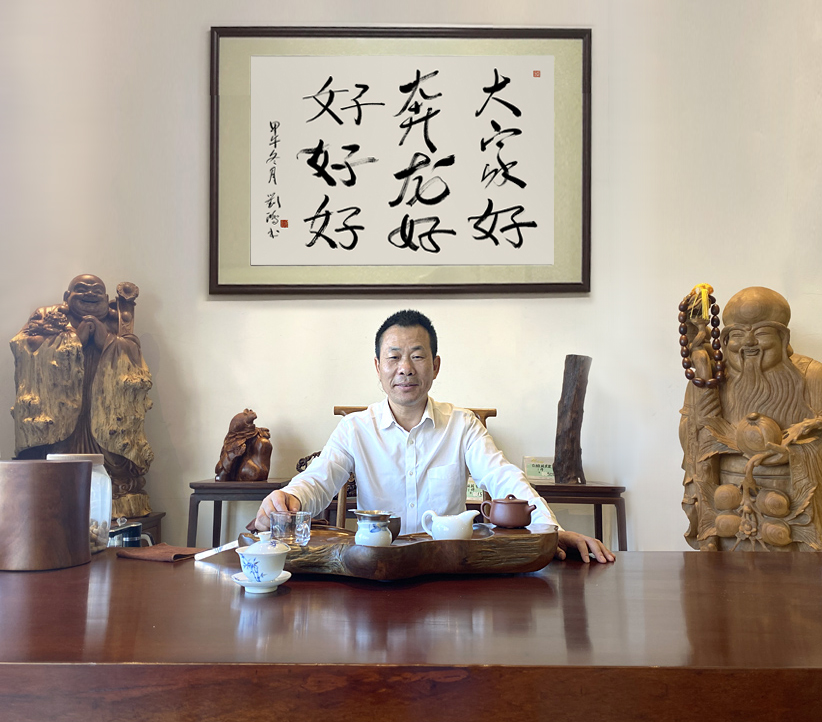 大家好
奔龙好
好好好
甲午冬月 劉鴻书